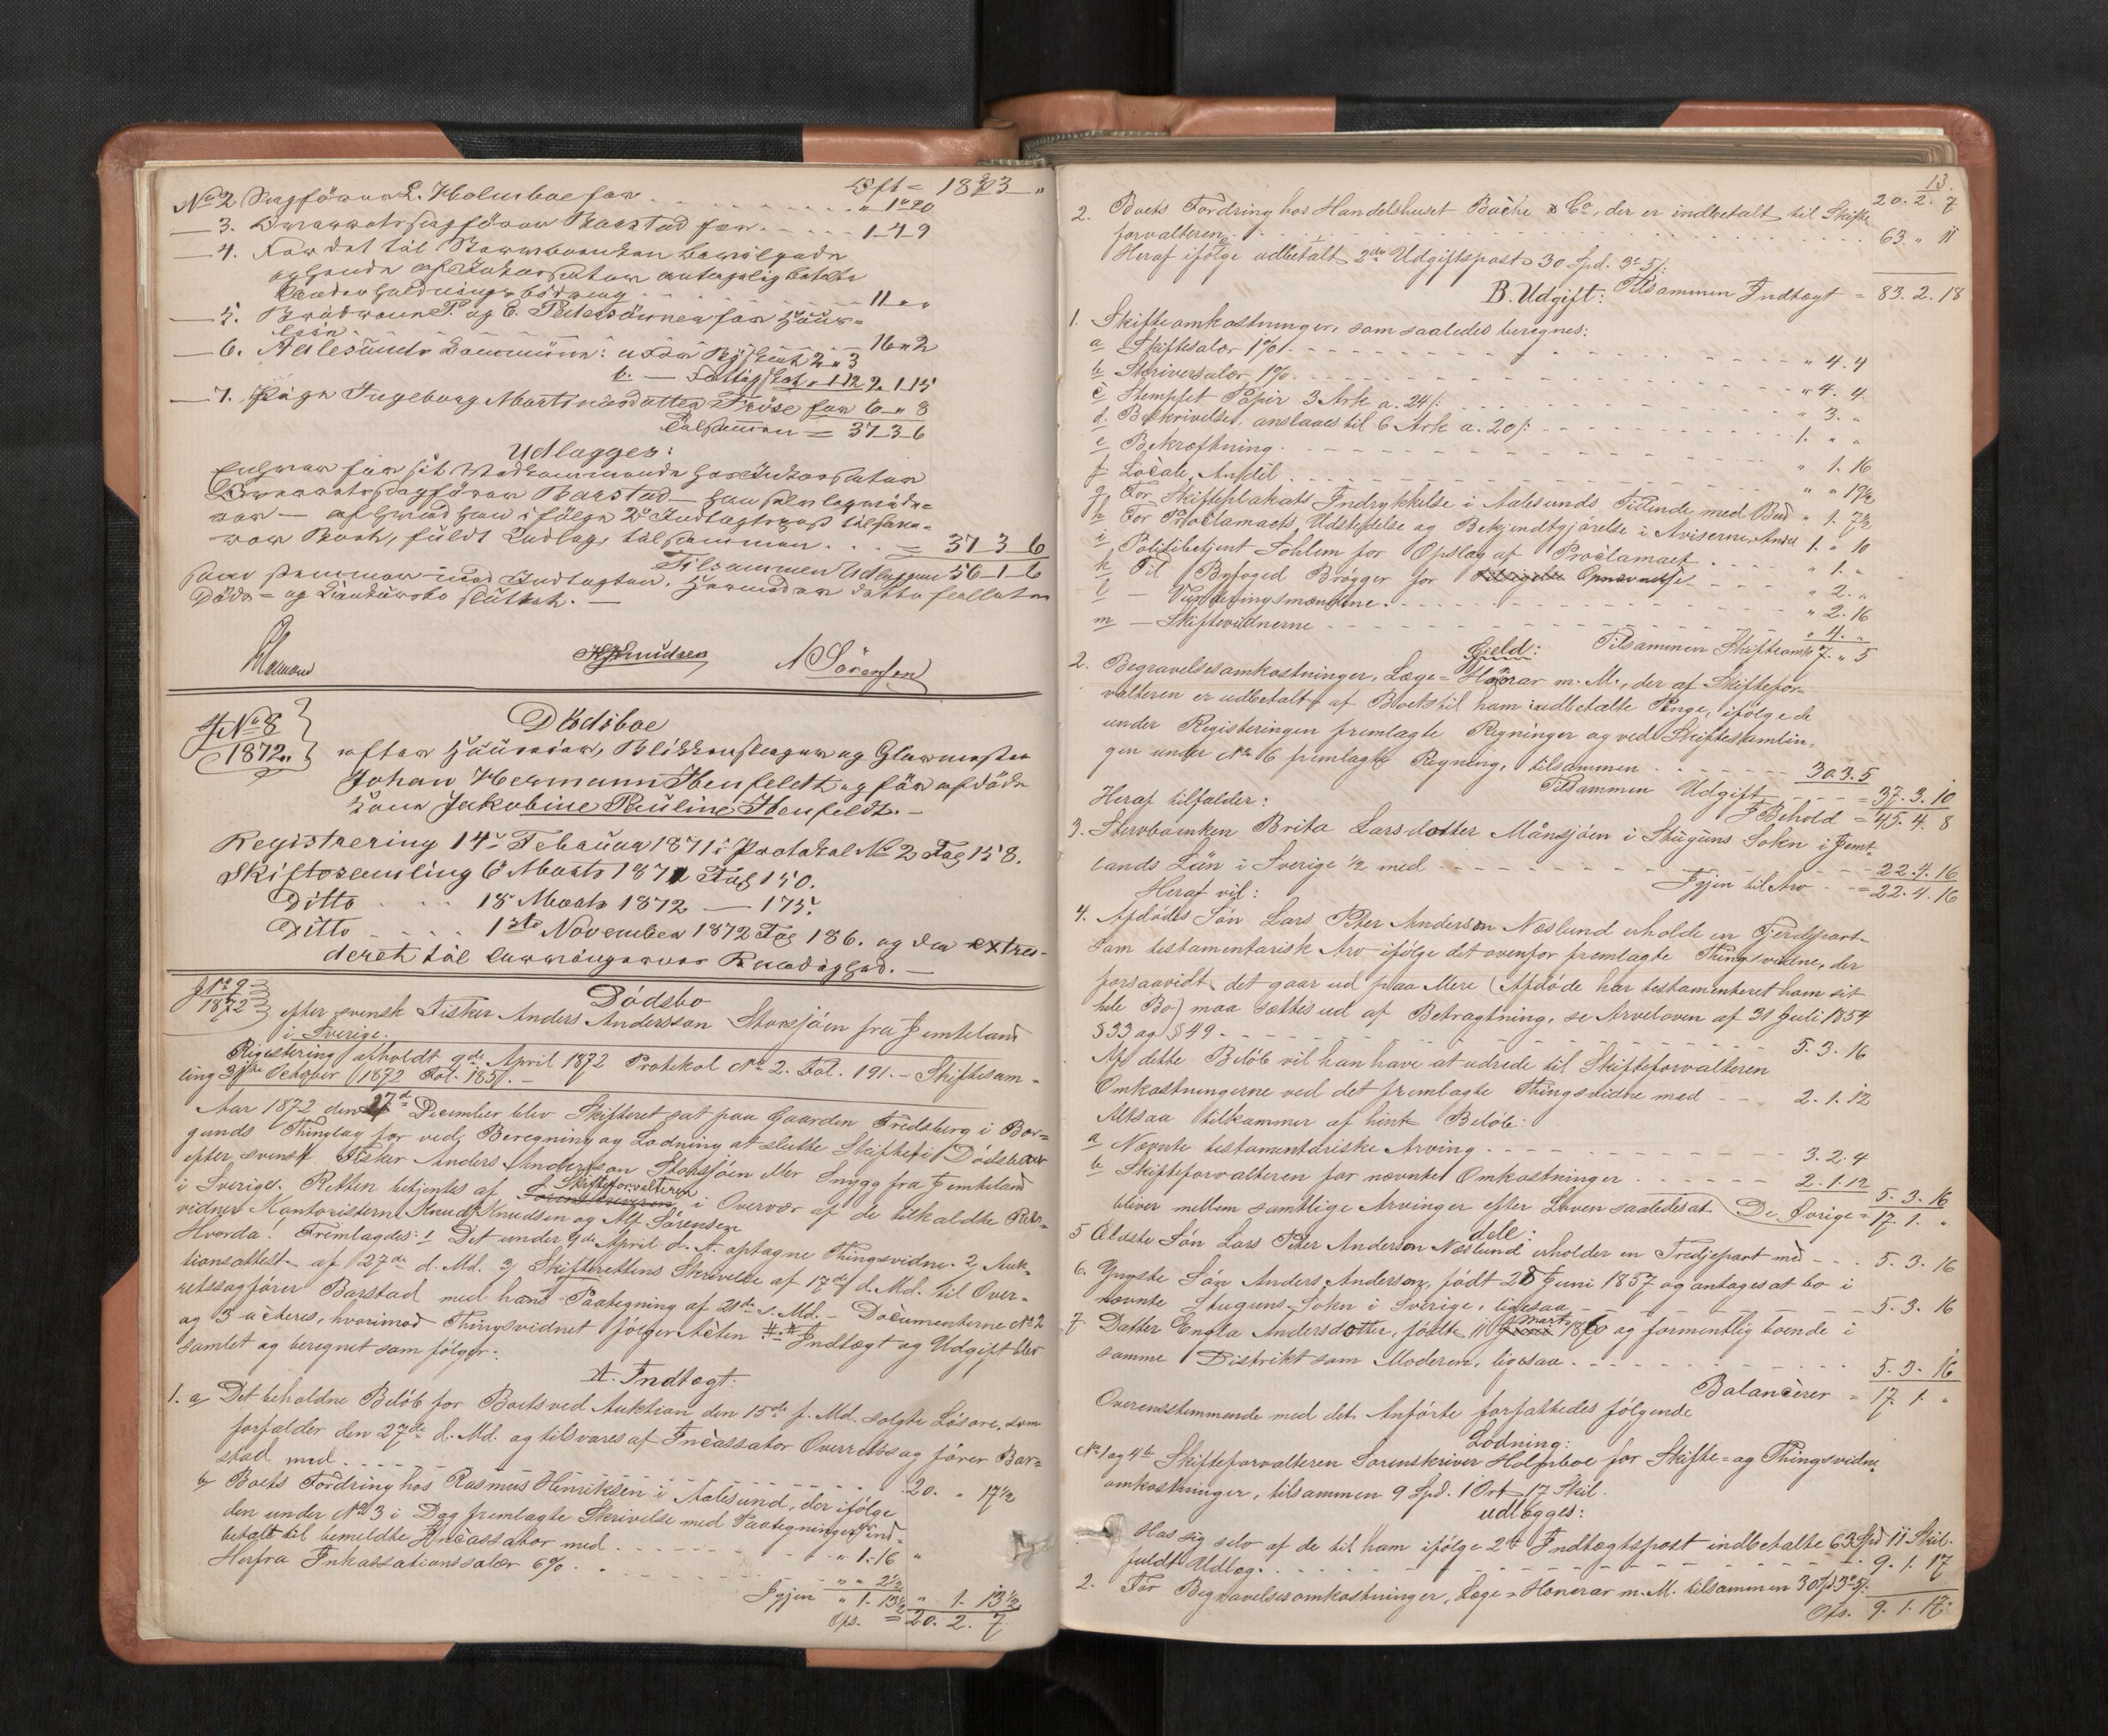 No 2 Sagförer L. Holmboe for . . . . . . . . . . " 1 " 20
— 3. Overretssagförer Barstad for . . . . . 1 - 4 - 9
— 4.
. . . 11 " "
— 5. Brödrene P. og E. Petersönner for Huus-
leie . . . . . 16 " 2
— 6. Aalesunds Commune: a for Byskat 2 " 3
b. — Fattigskat " 1-12 2. 1-15
— 7. Pige Ingeborg Martinasdatter Fröse for 6 - " 8
Tilsammen = 37-3-6
Udlægges:
Overretssagförer Barstad —
. . . = 37 3 6
Tilsammen Udlæggene 56-1-6
Döds- og sluttet. —
N Sörensen
J No 8
1872.
Dödsboe
efter Huuseier, Blikkenslager og Glarmester
Johan Hermann Henfeldt og för afdöde
Kone Jakobine Pauline Henfeldt. —
Registrering 14de Februar 1871 i Protokol No 2 Fol 158.
Skiftesamling 6 Marts 1871 Fol 150.
Ditto . . . . 18 Marts 1872 — 175.
Ditto . . . . 1ste November 1872 Fol 186. og der extra-
deret til
J No 9
1872
Dödsbo
efter svensk Fisker Anders Andersson Storsjöen fra Jemteland
i Sverige.
Registering afholdt 9de April 1872 Protokol No 2. Fol. 191. — Skiftesam-
ling 31te October 1872 Fol. 185. —
Aar 1872 den 27de December blev Skifteret sat paa Gaarden Fredsberg i Bor-
gunds Thinglag for ved Beregning og Lodning at slutte Skiftet i Dödsboet
efter svensk Fisker Anders Andersson Storsjöen eller Snygg fra Jemteland
i Sverige. Retten betjentes af Skifteforvalteren i Overvær af de tilkaldte Rets-
vidner Kontoristerne Knud Knudsen og Alf Sörensen
Hvorda! Fremlagdes: 1 Det under 9de April d. A. optagne Thingsvidne. 2, Auk-
tionsattest af 27de d. Md. 3, Skifterettens Skrivelse af 17de d. Md. til Over-
retssagförer Barstad med hans Paategning af 21de s. Md. — Documenterne No 2
og 3 acteres, hvorimod Thingsvidnet fölger Acten. Indtægt og Udgift blev
samlet og beregnet som fölger:
A. Indtægt:
1. a, Det beholdne Belöb for Boets ved Auktion den 15de f. Md. solgte Lösöre, som
forfalder den 27de d. Md. og tilsvares af Incassator Overretssagförer Bar-
stad med . . . . . 20. " 17½
b, Boets Fordring hos Rasmus Henriksen i Aalesund, der ifölge
den under No 3 i Dag fremlagte Skrivelse med Paategninger ind-
betalt til bemeldte Incassator med . . . . " 1. 16 "
Herfra Inkassationssalær 6% . . . . " " 2½
Igjen " 1. 13½ " 1. 13½
Ops. = 20. 2. 7
13.
20. 2. 7
2. Boets Fordring hos Handelshuset Bache & Co, der er indbetalt til Skifte-
forvalteren . . . . . 63. " 11
Heraf ifölge udbetalt 2den Udgiftspost 30 Spd. 3 5/:
Tilsammen Indtægt = 83. 2. 18
B. Udgift:
1. Skifteomkostninger, som saaledes beregnes:
a Skiftesalær 1% . . . . " 4. 4
b Skriversalær 1% . . . . " 4. 4.
c Stemplet Papir 3 Ark a. 24/: . . . . " 3. "
d. Beskrivelse, anslaaes til 6 Ark a. 20/: . . . . 1. " "
e Bekræftning . . . . " 1. 16
f Locale, Andel . . . . " " 19½
g For Skifteplakats Indrykkelse i Aalesunds Tidende med Bud " 1. 7½
h For Proclamaets Udstedelse og Bekjendtgjörelse i Aviserne, Andel 1. " 10
i Politibetjent Sohlem for Opslag af Proclamaet . . . . " 1. "
k Til Byfoged Brögger for Opnævnelse . . . . " 2. "
l — Vurderingsmændene . . . . " 2. 16
m — Skiftevidnerne . . . . " 4. "
Tilsammen Skifteomk. 7. " 5
Gjeld:
2. Begravelsesomkostninger, Læge-Honorar m. M., der af Skiftefor-
valteren er udbetalt af Boets til ham indbetalte Penge, ifölge de
under Registeringen fremlagte Regninger og ved Skiftesamlin-
gen under No 6 fremlagte Regning, tilsammen . . . . 30. 3. 5
Tilsammen Udgift . . . = 37. 3. 10
I Behold = 45. 4. 8
Heraf tilfalder:
3. Stervboenken Brita Larsdotter Månsjöen i Stuguns Sokn i Jemt-
lands Län i Sverige ½ med . . . . 22. 4. 16
Igjen til Arv . . = 22. 4. 16
Heraf vil:
4. Afdödes Sön Lars Peter Anderson Næslund erholde en Fjerdepart
som testamentarisk Arv ifölge det ovenfor fremlagte Thingsvidne, der
forsaavidt det gaar ud paa Mere (Afdöde har testamenteret ham sit
hele Bo) maa sættes ud af Betragtning, se Arveloven af 31 Juli 1854
§ 33 og § 49 . . . . 5. 3. 16
Af dette Belöb vil han have at udrede til Skifteforvalteren
Omkostningerne ved det fremlagte Thingsvidne med . . . 2. 1. 12
Altsaa tilkommer af hint Belöb:
a Nævnte testamentariske Arving . . . . 3. 2. 4
b Skifteforvalteren for nævnte Omkostninger . . . . 2. 1. 12 5. 3. 16
De Övrige = 17. 1. "
bliver mellem samtlige Arvinger efter Loven saaledes at
dele:
5 Ældste Sön Lars Peter Anderson Næslund erholder en Tredjepart med . . . 5. 3. 16
6. Yngste Sön Anders Anderson, födt 28 Juni 1857 og antages at bo i
nævnte Stuguns Sokn i Sverige, ligesaa . . . . 5. 3. 16
7 Datter Engla Andersdotter, födt 11 Marts 1860 og formentlig boende i
samme Distrikt som Moderen, ligesaa . . . . 5. 3. 16
Balancerer = 17. 1. "
Overensstemmende med det Anförte forfattedes fölgende
Lodning:
No 1 og 4b Skifteforvalteren Sorenskriver Holmboe for Skifte- og Thingsvidne-
omkostninger, tilsammen 9 Spd. 1 Ort 17 Skil.
udlægges:
Hos sig selv af de til ham ifölge 2de Indtægtspost indbetalte 63 Spd 11 Skil.
fuldt Udlæg . . . . 9. 1. 17
2. For Begravelsesomkostninger, Læge-Honorar m. M. tilsammen 30 Spd. 3 5/:
Ops. 9. 1. 17